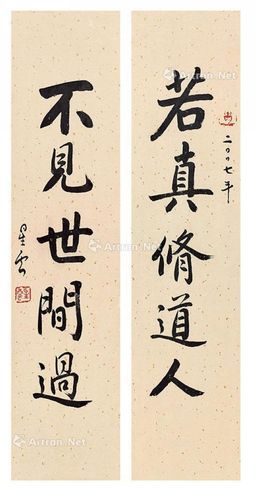 若真脩道人
二〇〇七年
不見世間過
星雲
Artron.Net
Artron.Net
Artron.Net
Artron.Net